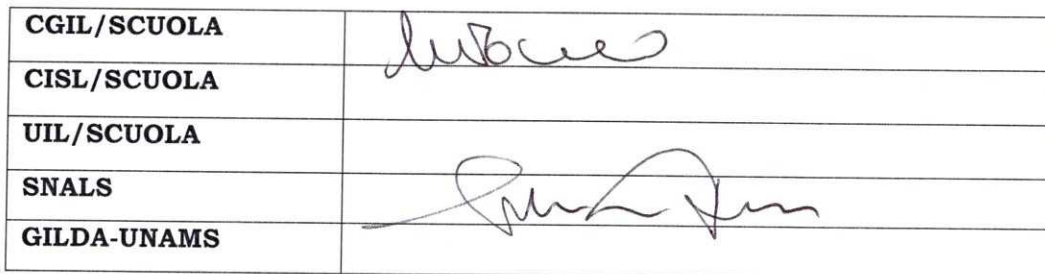 CGIL/SCUOLA
CISL/SCUOLA
UIL/SCUOLA
SNALS
GILDA-UNAMS